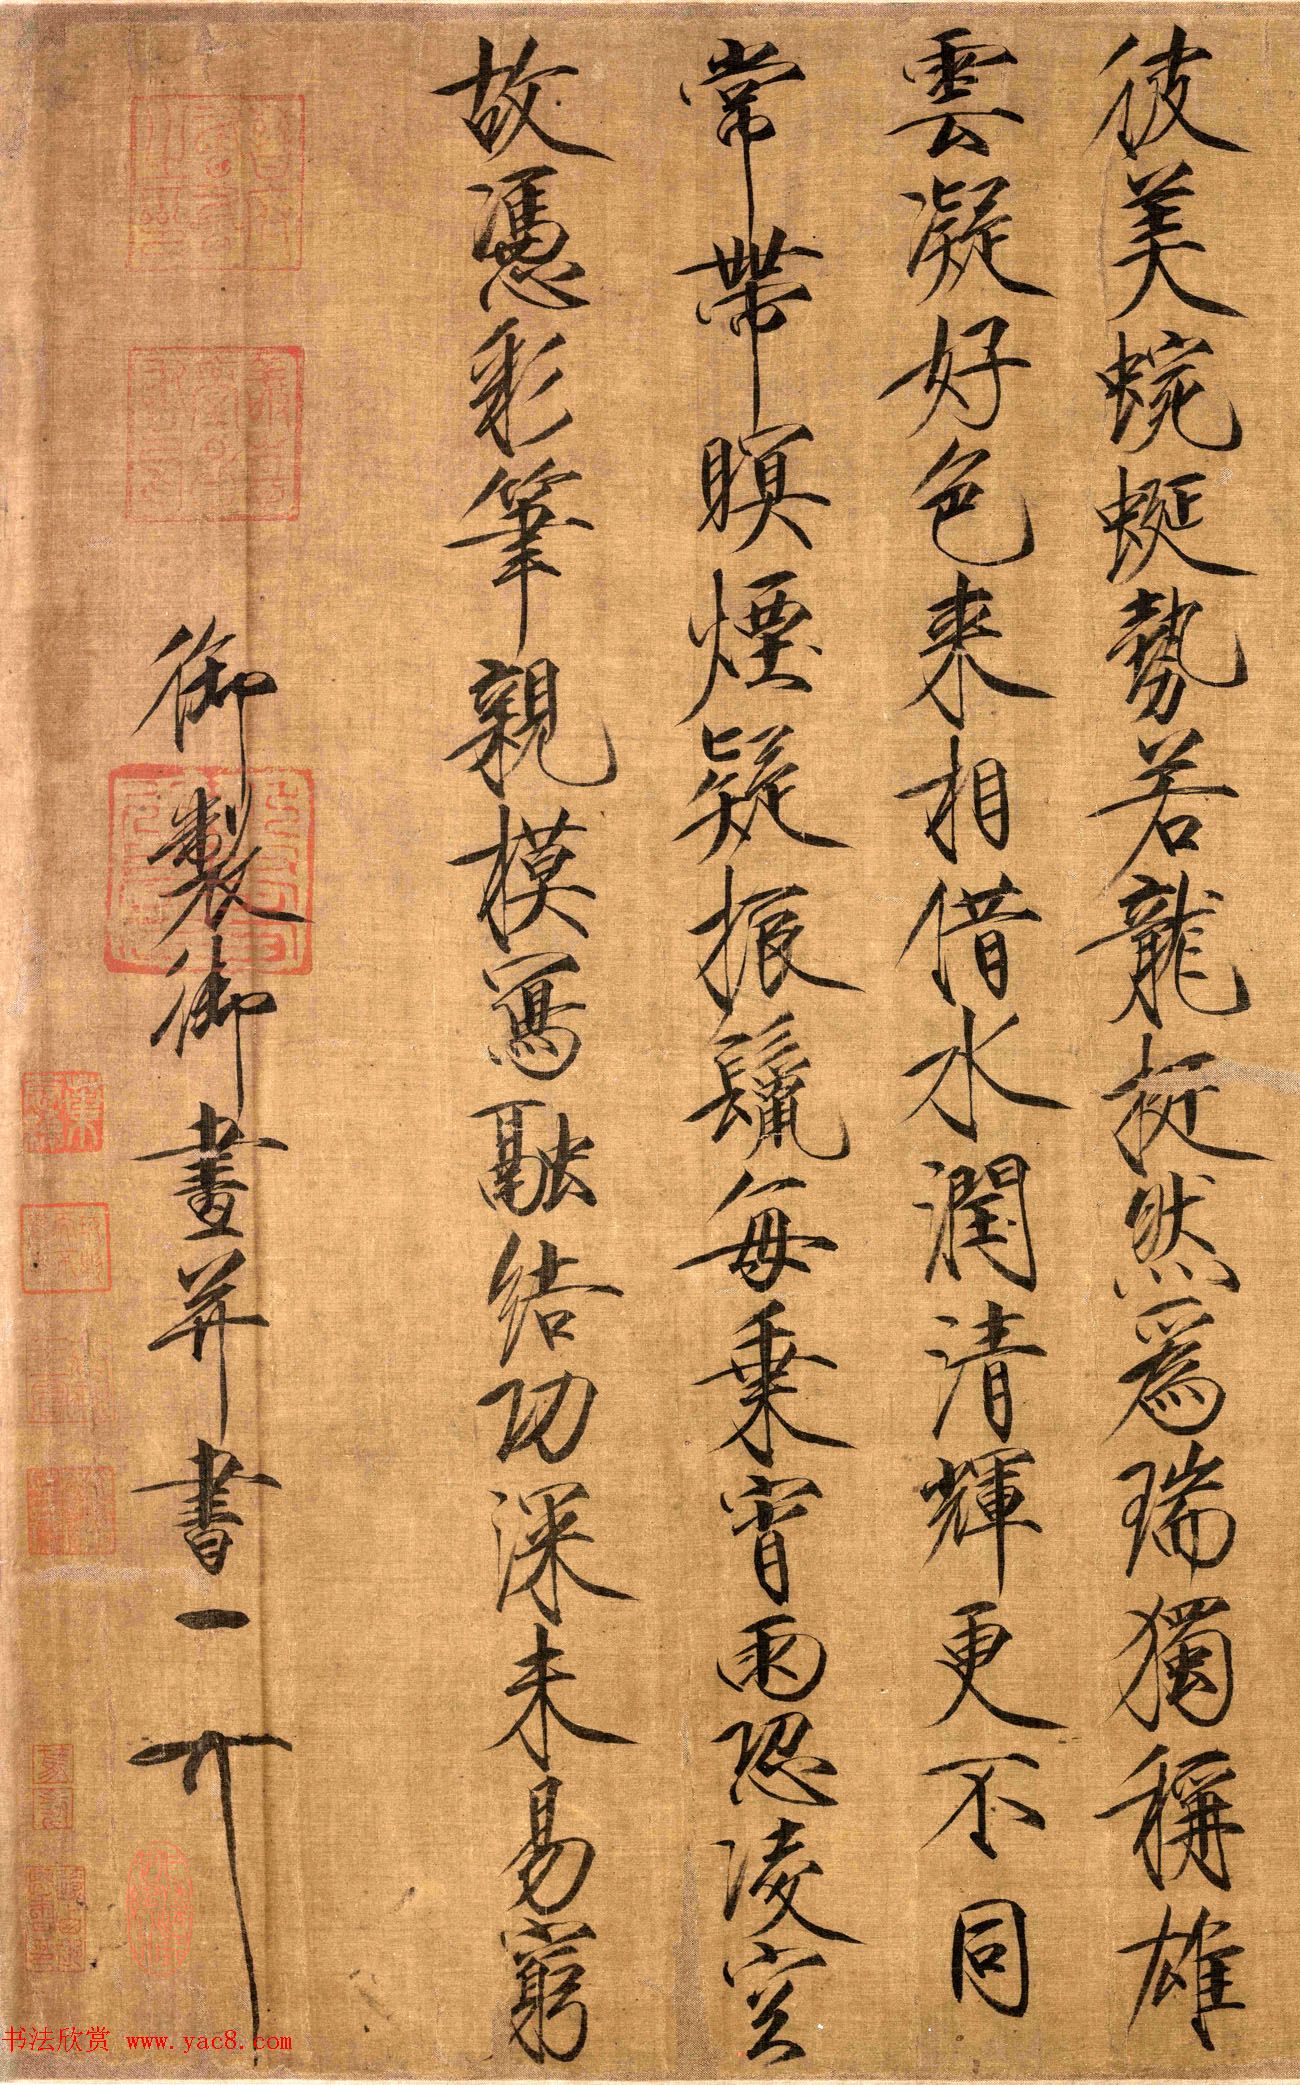 彼美蜿蜒勢若龍挺然爲瑞獨稱雄
雲凝好色來相借水潤清輝更不同
常帶暝煙疑振鬣每乗宵雨恐凌空
故憑彩筆親模寫融結功深未易窮
御製御畫并書
一
书法欣赏 www.yac8.com